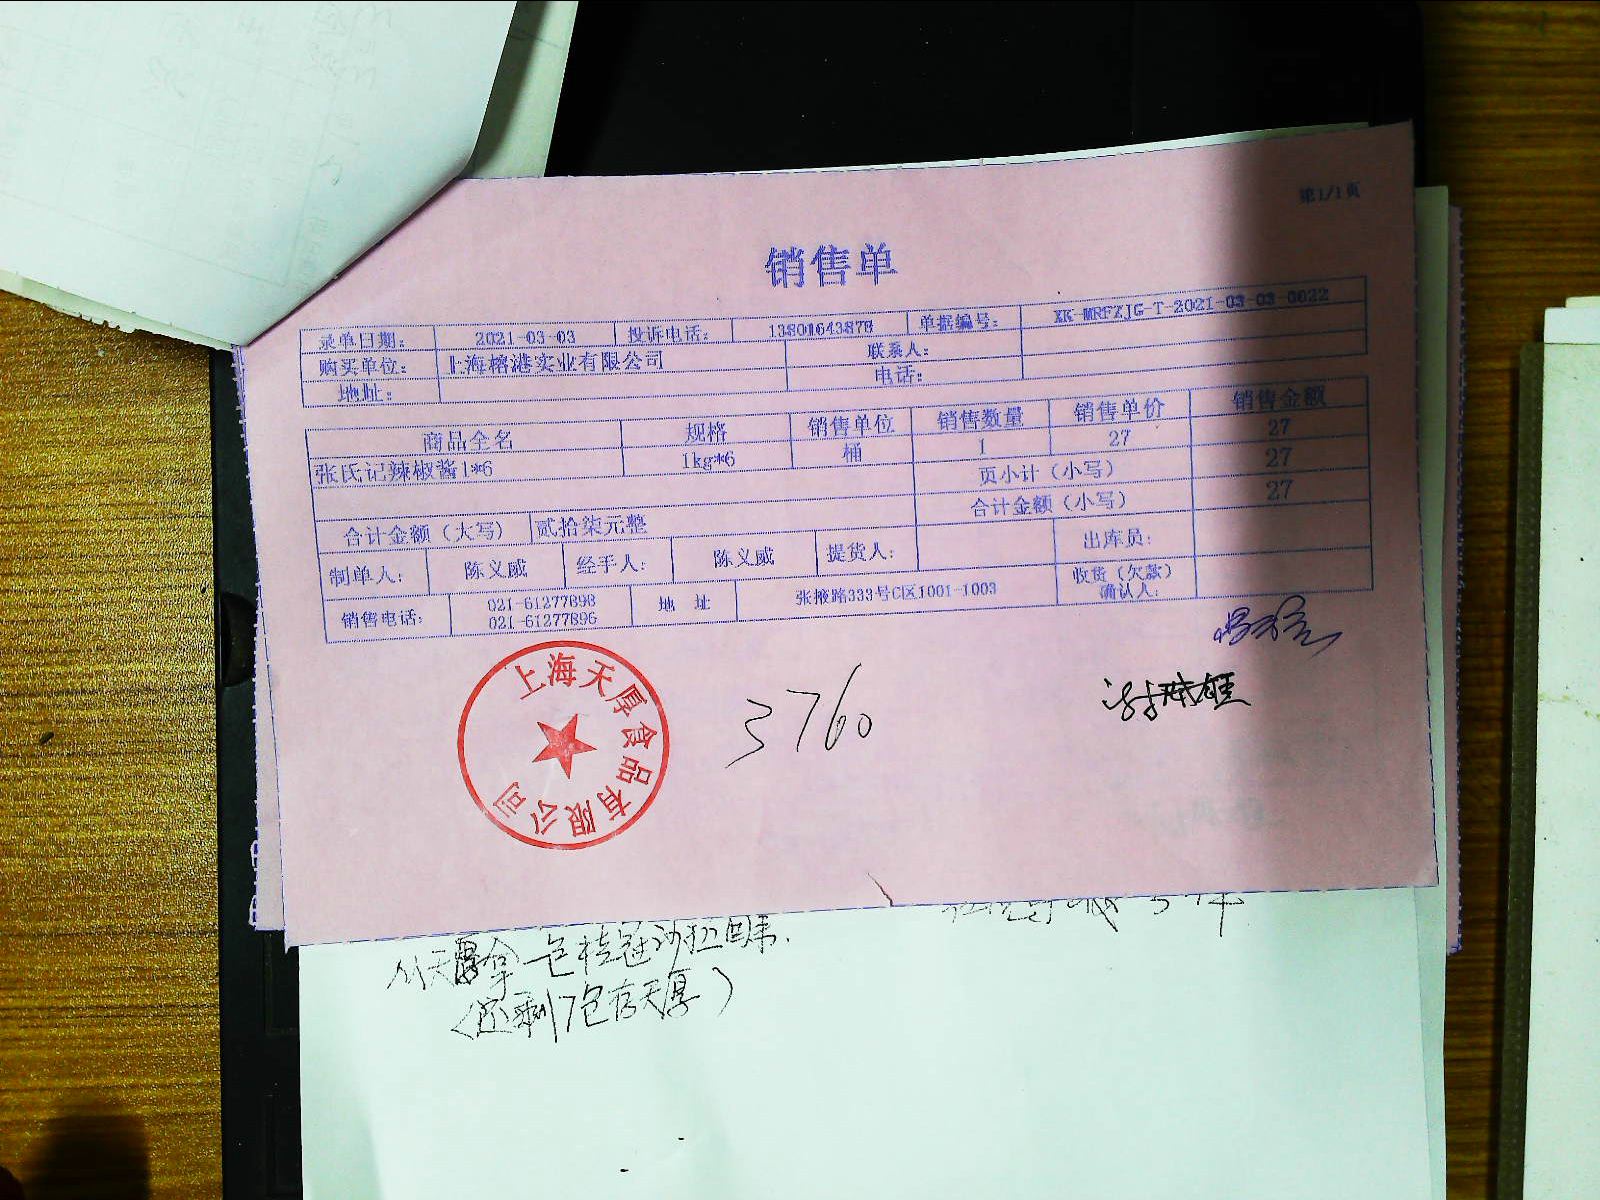 第1/1页
销售单
录单日期： 2021-03-03 投诉电话： 13801643878 单据编号： XK-MRFZJG-T-2021-03-03-0022
购买单位： 上海榕港实业有限公司 联系人：
地址： 电话：
商品全名 规格 销售单位 销售数量 销售单价 销售金额
张氏记辣椒酱1*6 1kg*6 桶 1 27 27
页小计（小写） 27
合计金额（大写） 贰拾柒元整 合计金额（小写） 27
制单人： 陈义威 经手人： 陈义威 提货人： 出库员：
销售电话： 021-61277898 地 址 张掖路333号C区1001-1003 收货（欠款）
021-61277896 确认人：
上海天厚食品有限公司
3760
从天厚拿一包桂冠沙拉回来.
（还剩7包存天厚）